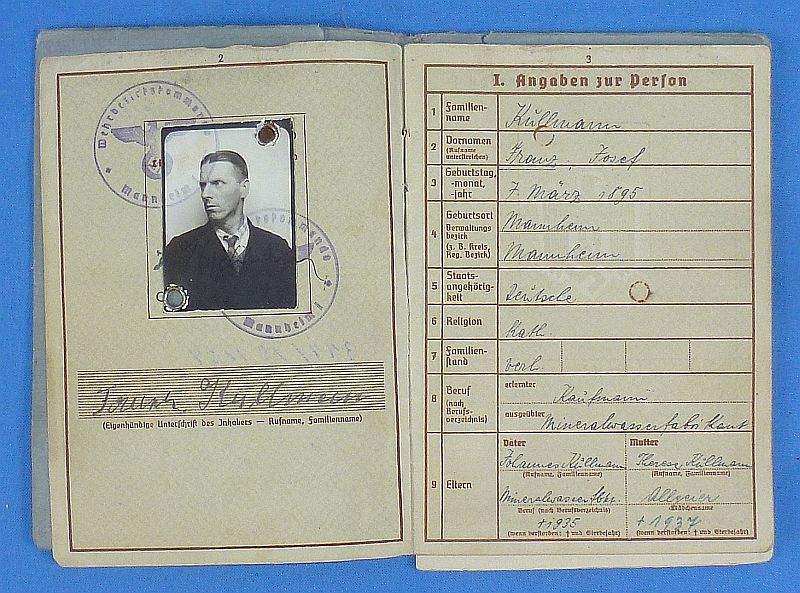 2
Wehrbezirkskommando
Mannheim I
Mannheim I
Franz Kullmann
(Eigenhändige Unterschrift des Inhabers — Rufname, Familienname)
3
I. Angaben zur Person
1 Familien-
name
Kullmann
2 Vornamen
(Rufname
unterstreichen)
Franz, Josef
3 Geburtstag,
-monat,
-jahr
7. März 1895
4 Geburtsort
Verwaltungs-
bezirk
(z. B. Kreis,
Reg. Bezirk)
Mannheim
Mannheim
5 Staats-
angehörig-
keit
6 Religion
kath.
7 Familien-
stand
8 Beruf
(nach
Berufs-
verzeichnis)
erlernter
Kaufmann
ausgeübter
Mineralwasserfabrikant
9 Eltern
Vater
Johannes Kullmann
(Rufname, Familienname)
Beruf (nach Berufsverzeichnis)
+ 1935
(wenn verstorben: † und Sterbejahr)
Mutter
Therese Kullmann
(Rufname, Familienname)
Mädchenname
+ 1937
(wenn verstorben: † und Sterbejahr)